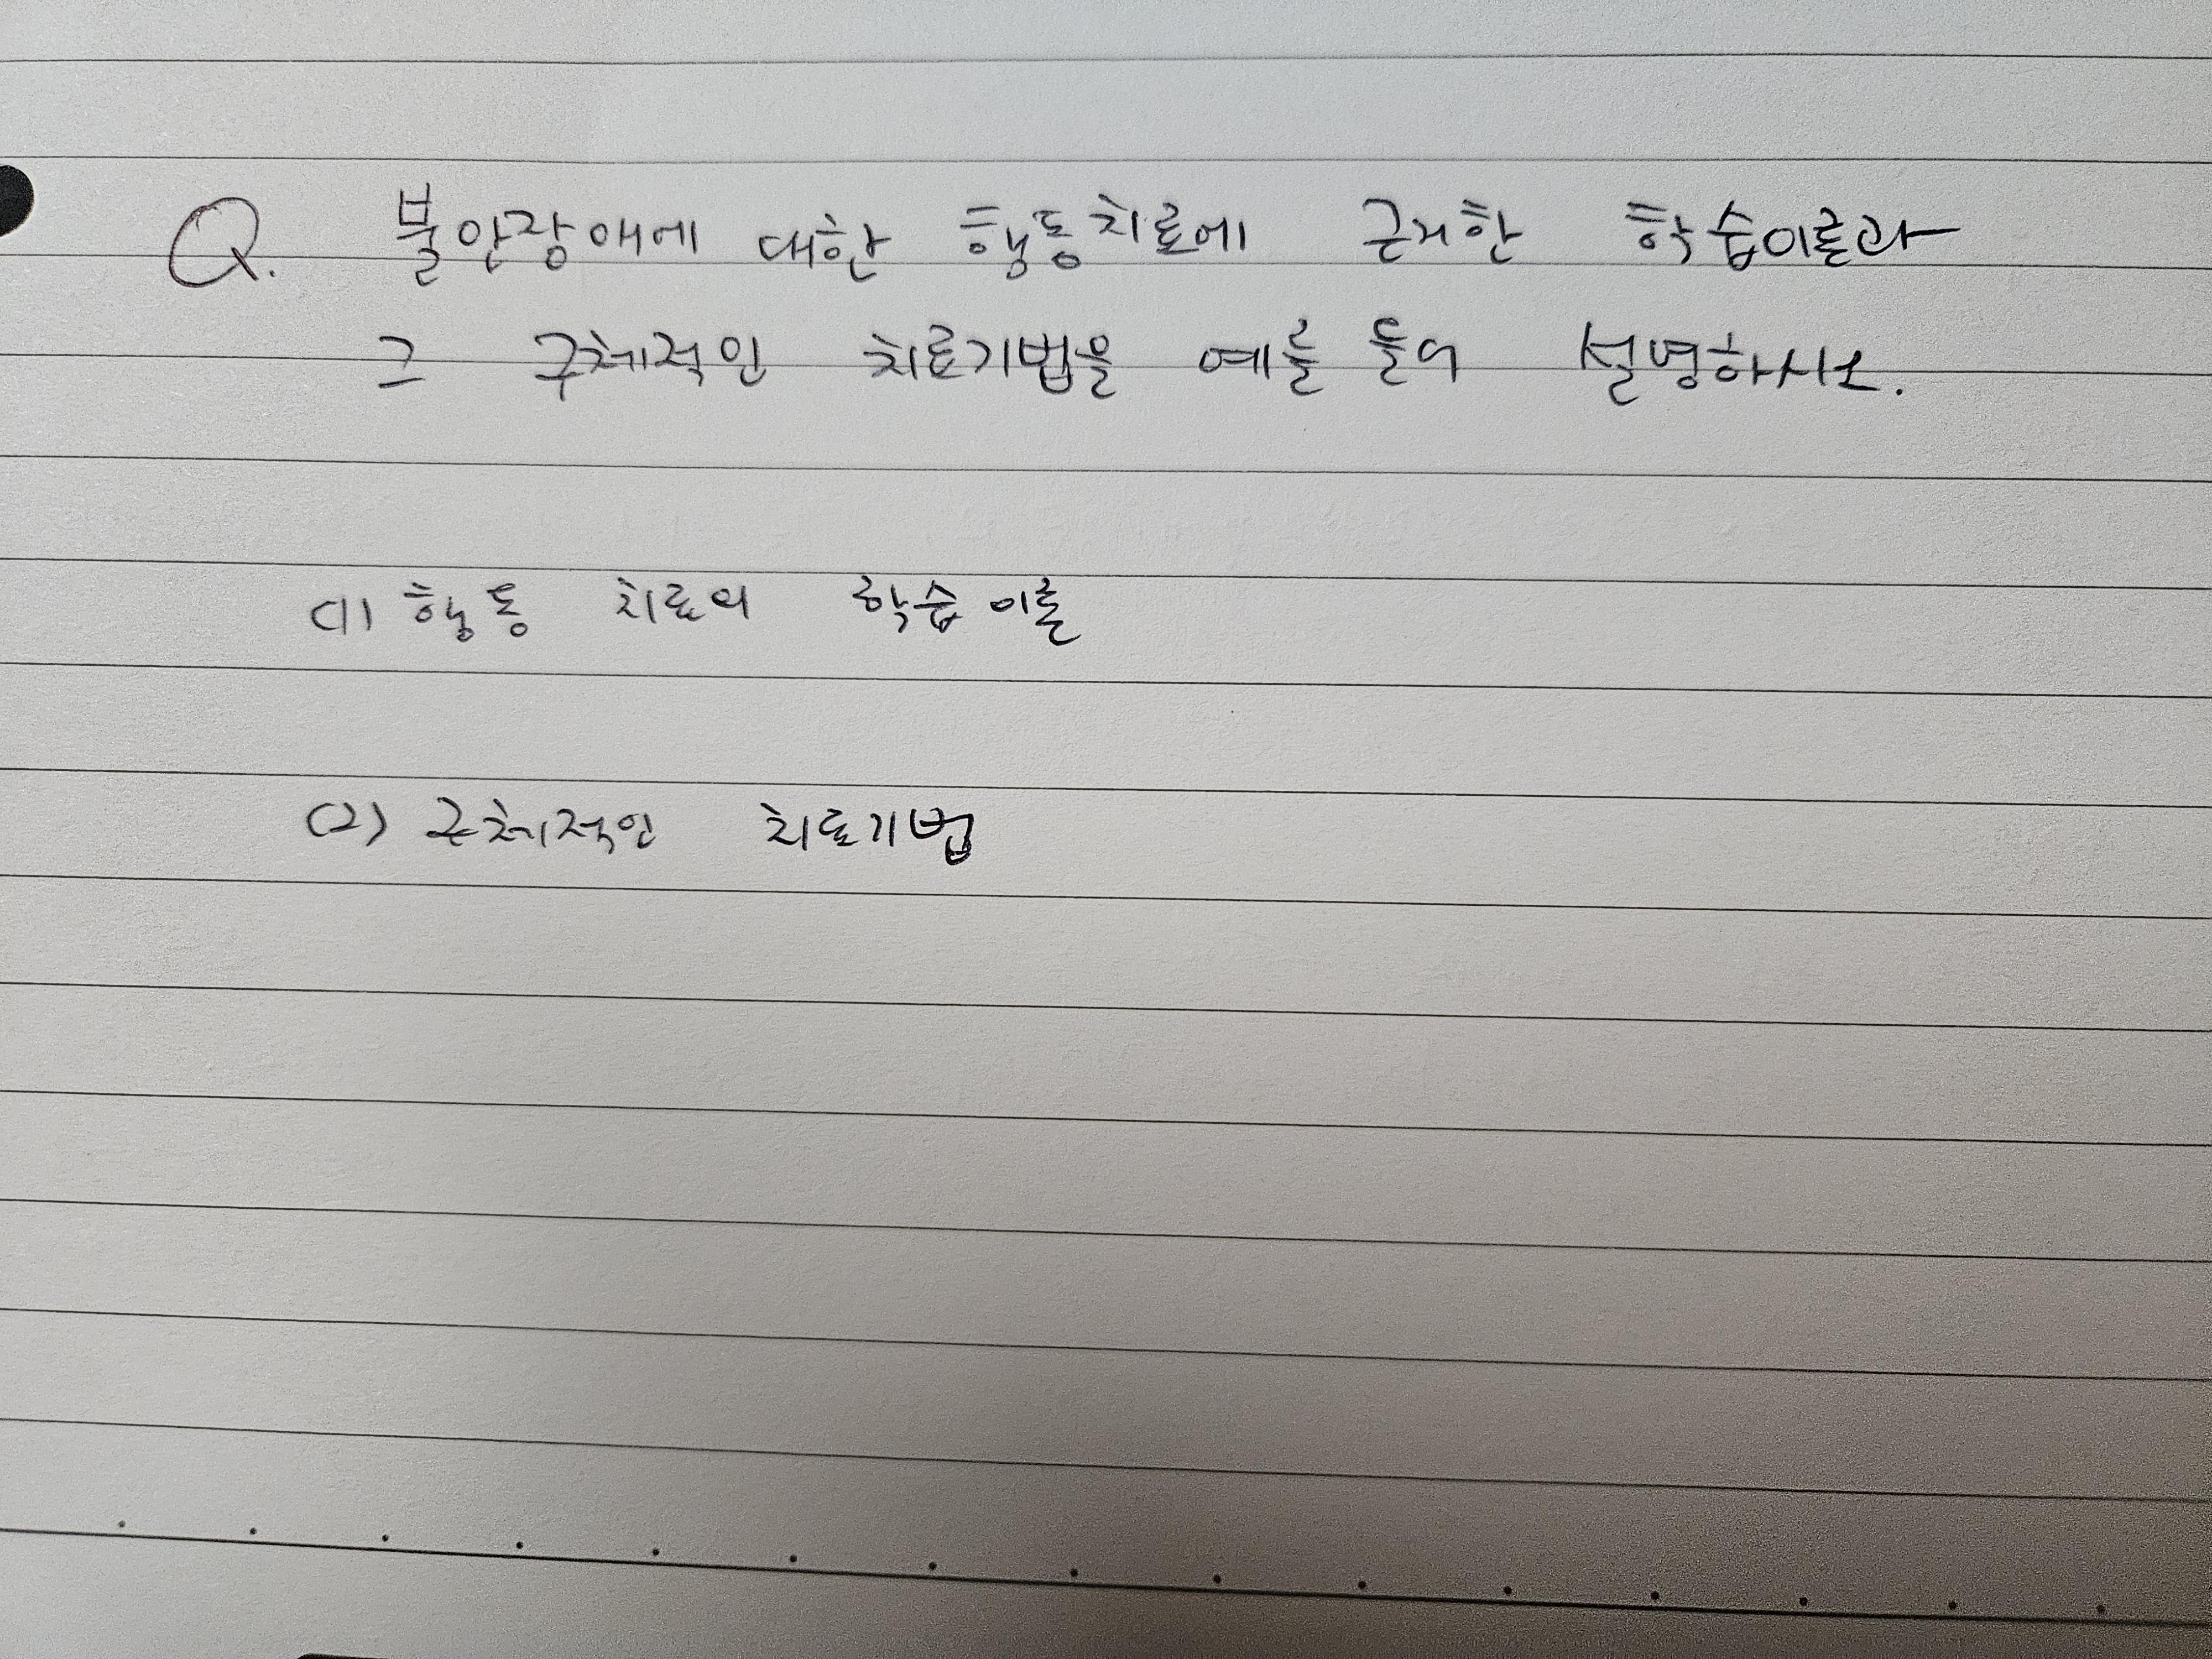 Q. 불안장애에 대한 행동치료에 근거한 학습이론과
그 구체적인 치료기법을 예를 들어 설명하시오.
(1) 행동 치료의 학습이론
(2) 구체적인 치료기법